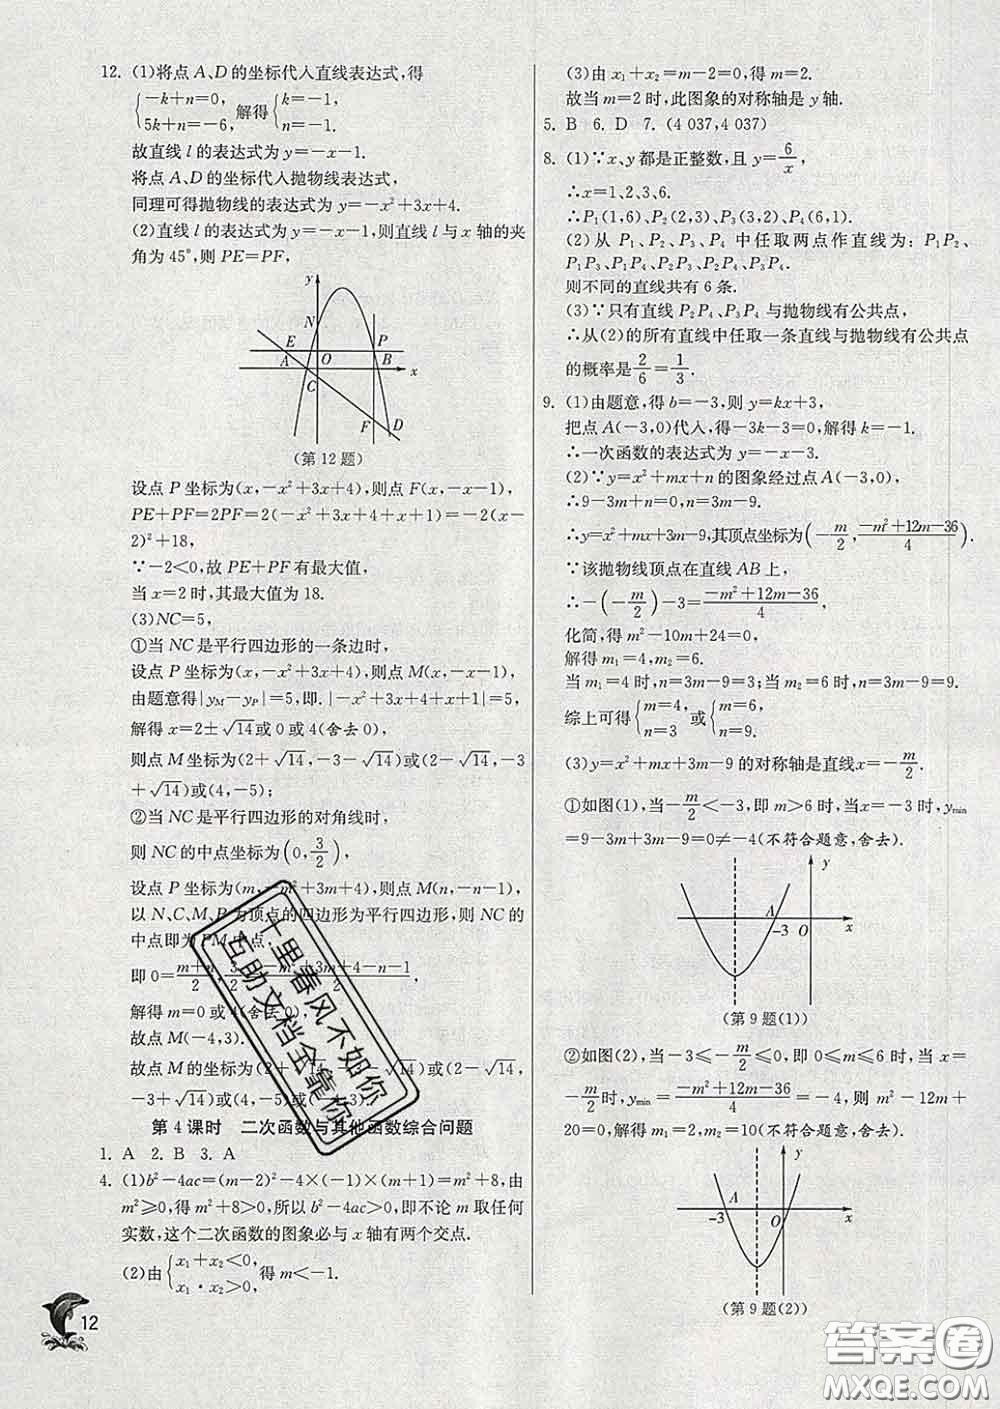 12. (1)将点 A、D 的坐标代入直线表达式,得
{−k+n=0, 5k+n=−6, 解得{k=−1, n=−1.
故直线 l 的表达式为 y=−x−1.
将点 A、D 的坐标代入抛物线表达式,
同理可得抛物线的表达式为 y=−x²+3x+4.
(2)直线 l 的表达式为 y=−x−1,则直线 l 与 x 轴的夹
角为 45°,则 PE=PF,
y
N
E
P
A
O
B
x
C
F
D
(第 12 题)
设点 P 坐标为(x,−x²+3x+4),则点 F(x,−x−1),
PE+PF=2PF=2(−x²+3x+4+x+1)=−2(x−
2)²+18,
∵−2<0,故 PE+PF 有最大值,
当 x=2 时,其最大值为 18.
(3)NC=5,
①当 NC 是平行四边形的一条边时,
设点 P 坐标为(x,−x²+3x+4),则点 M(x,−x−1),
由题意得|yM−yP|=5,即.|−x²+3x+4+x+1|=5,
解得 x=2±√14或 0 或 4(舍去 0),
则点 M 坐标为(2+√14,−3−√14)或(2−√14,−3
+√14)或(4,−5);
②当 NC 是平行四边形的对角线时,
则 NC 的中点坐标为(0,3/2),
设点 P 坐标为(m,−m²+3m+4),则点 M(n,−n−1),
以 N、C、M、P 为顶点的四边形为平行四边形,则 NC 的
中点即为 PM 中点,
即 0=(m+n)/2,3/2=(−m²+3m+4−n−1)/2,
解得 m=0 或 4(舍去 0),
故点 M(−4,3).
故点 M 的坐标为(2+√14,−3−√14)或(2−√14,
−3+√14)或(4,−5)或(−4,3).
第 4 课时 二次函数与其他函数综合问题
1. A 2. B 3. A
4. (1)b²−4ac=(m−2)²−4×(−1)×(m+1)=m²+8,由
m²≥0,得 m²+8>0,所以 b²−4ac>0,即不论 m 取任何
实数,这个二次函数的图象必与 x 轴有两个交点.
(2)由{x₁+x₂<0, x₁·x₂>0, 得 m<−1.
12
(3)由 x₁+x₂=m−2=0,得 m=2.
故当 m=2 时,此图象的对称轴是 y 轴.
5. B 6. D 7. (4 037,4 037)
8. (1)∵x、y 都是正整数,且 y=6/x,
∴x=1、2、3、6.
∴P₁(1,6)、P₂(2,3)、P₃(3,2)、P₄(6,1).
(2)从 P₁、P₂、P₃、P₄ 中任取两点作直线为:P₁P₂、
P₁P₃、P₁P₄、P₂P₃、P₂P₄、P₃P₄.
则不同的直线共有 6 条.
(3)∵只有直线 P₂P₄、P₃P₄ 与抛物线有公共点,
∴从(2)的所有直线中任取一条直线与抛物线有公共点
的概率是2/6=1/3.
9. (1)由题意,得 b=−3,则 y=kx+3,
把点 A(−3,0)代入,得−3k−3=0,解得 k=−1.
∴一次函数的表达式为 y=−x−3.
(2)∵y=x²+mx+n 的图象经过点 A(−3,0),
∴9−3m+n=0,n=3m−9.
∴y=x²+mx+3m−9,其顶点坐标为(−m/2,(−m²+12m−36)/4).
∵该抛物线顶点在直线 AB 上,
∴−(−m/2)−3=(−m²+12m−36)/4,
化简,得 m²−10m+24=0,
解得 m₁=4,m₂=6.
当 m₁=4 时,n=3m−9=3;当 m₂=6 时,n=3m−9=9.
综上可得{m=4, n=3 或{m=6, n=9.
(3)y=x²+mx+3m−9 的对称轴是直线x=−m/2.
①如图(1),当−m/2<−3,即 m>6 时,当x=−3 时,ymin
=9−3m+3m−9=0≠−4(不符合题意,舍去).
y
A
−3
O
x
(第 9 题(1))
②如图(2),当−3≤−m/2≤0,即 0≤m≤6 时,当 x=
−m/2时,ymin=(−m²+12m−36)/4=−4,即 m²−12m+
20=0,解得 m₁=2,m₂=10(不符合题意,舍去).
y
A
−3
O
x
(第 9 题(2))
十里春风不如你
互助文档全靠你
答案圈
MXQE.COM